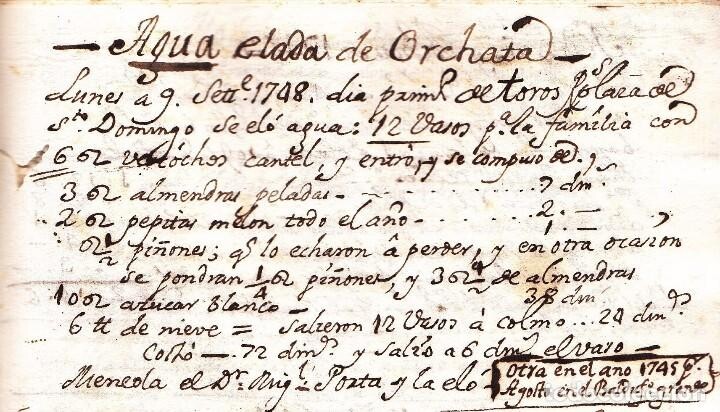 — Agua elada de Orchata —
Lunes à 9. Sett.e 1748. dia prim.o de toros plaza de
S.to Domingo se eló agua: 12 Vasos p.a la familia con
6 oz viscochos cantel, y entró, y se compuso de,
3 oz almendras peladas - . . . . . . . . . 7 din.s
2 oz pepitas melon todo el año - . . . . . . 2. —
oz 1/2 piñones; q.e lo echaron à perder, y en otra ocasion
se pondran 1/4 oz piñones, y 3 oz 1/2 de almendras
10 oz azucar Blanco — 38 din.s
6 tt de nieve = Salieron 12 Vasos à colmo ... 24 din.s
Costó — 72 din.s y salió a 6 din.s el vaso —
Meneola el D.r Mig.l Porta y la eló
Otra en el año 1745
Agosto en el